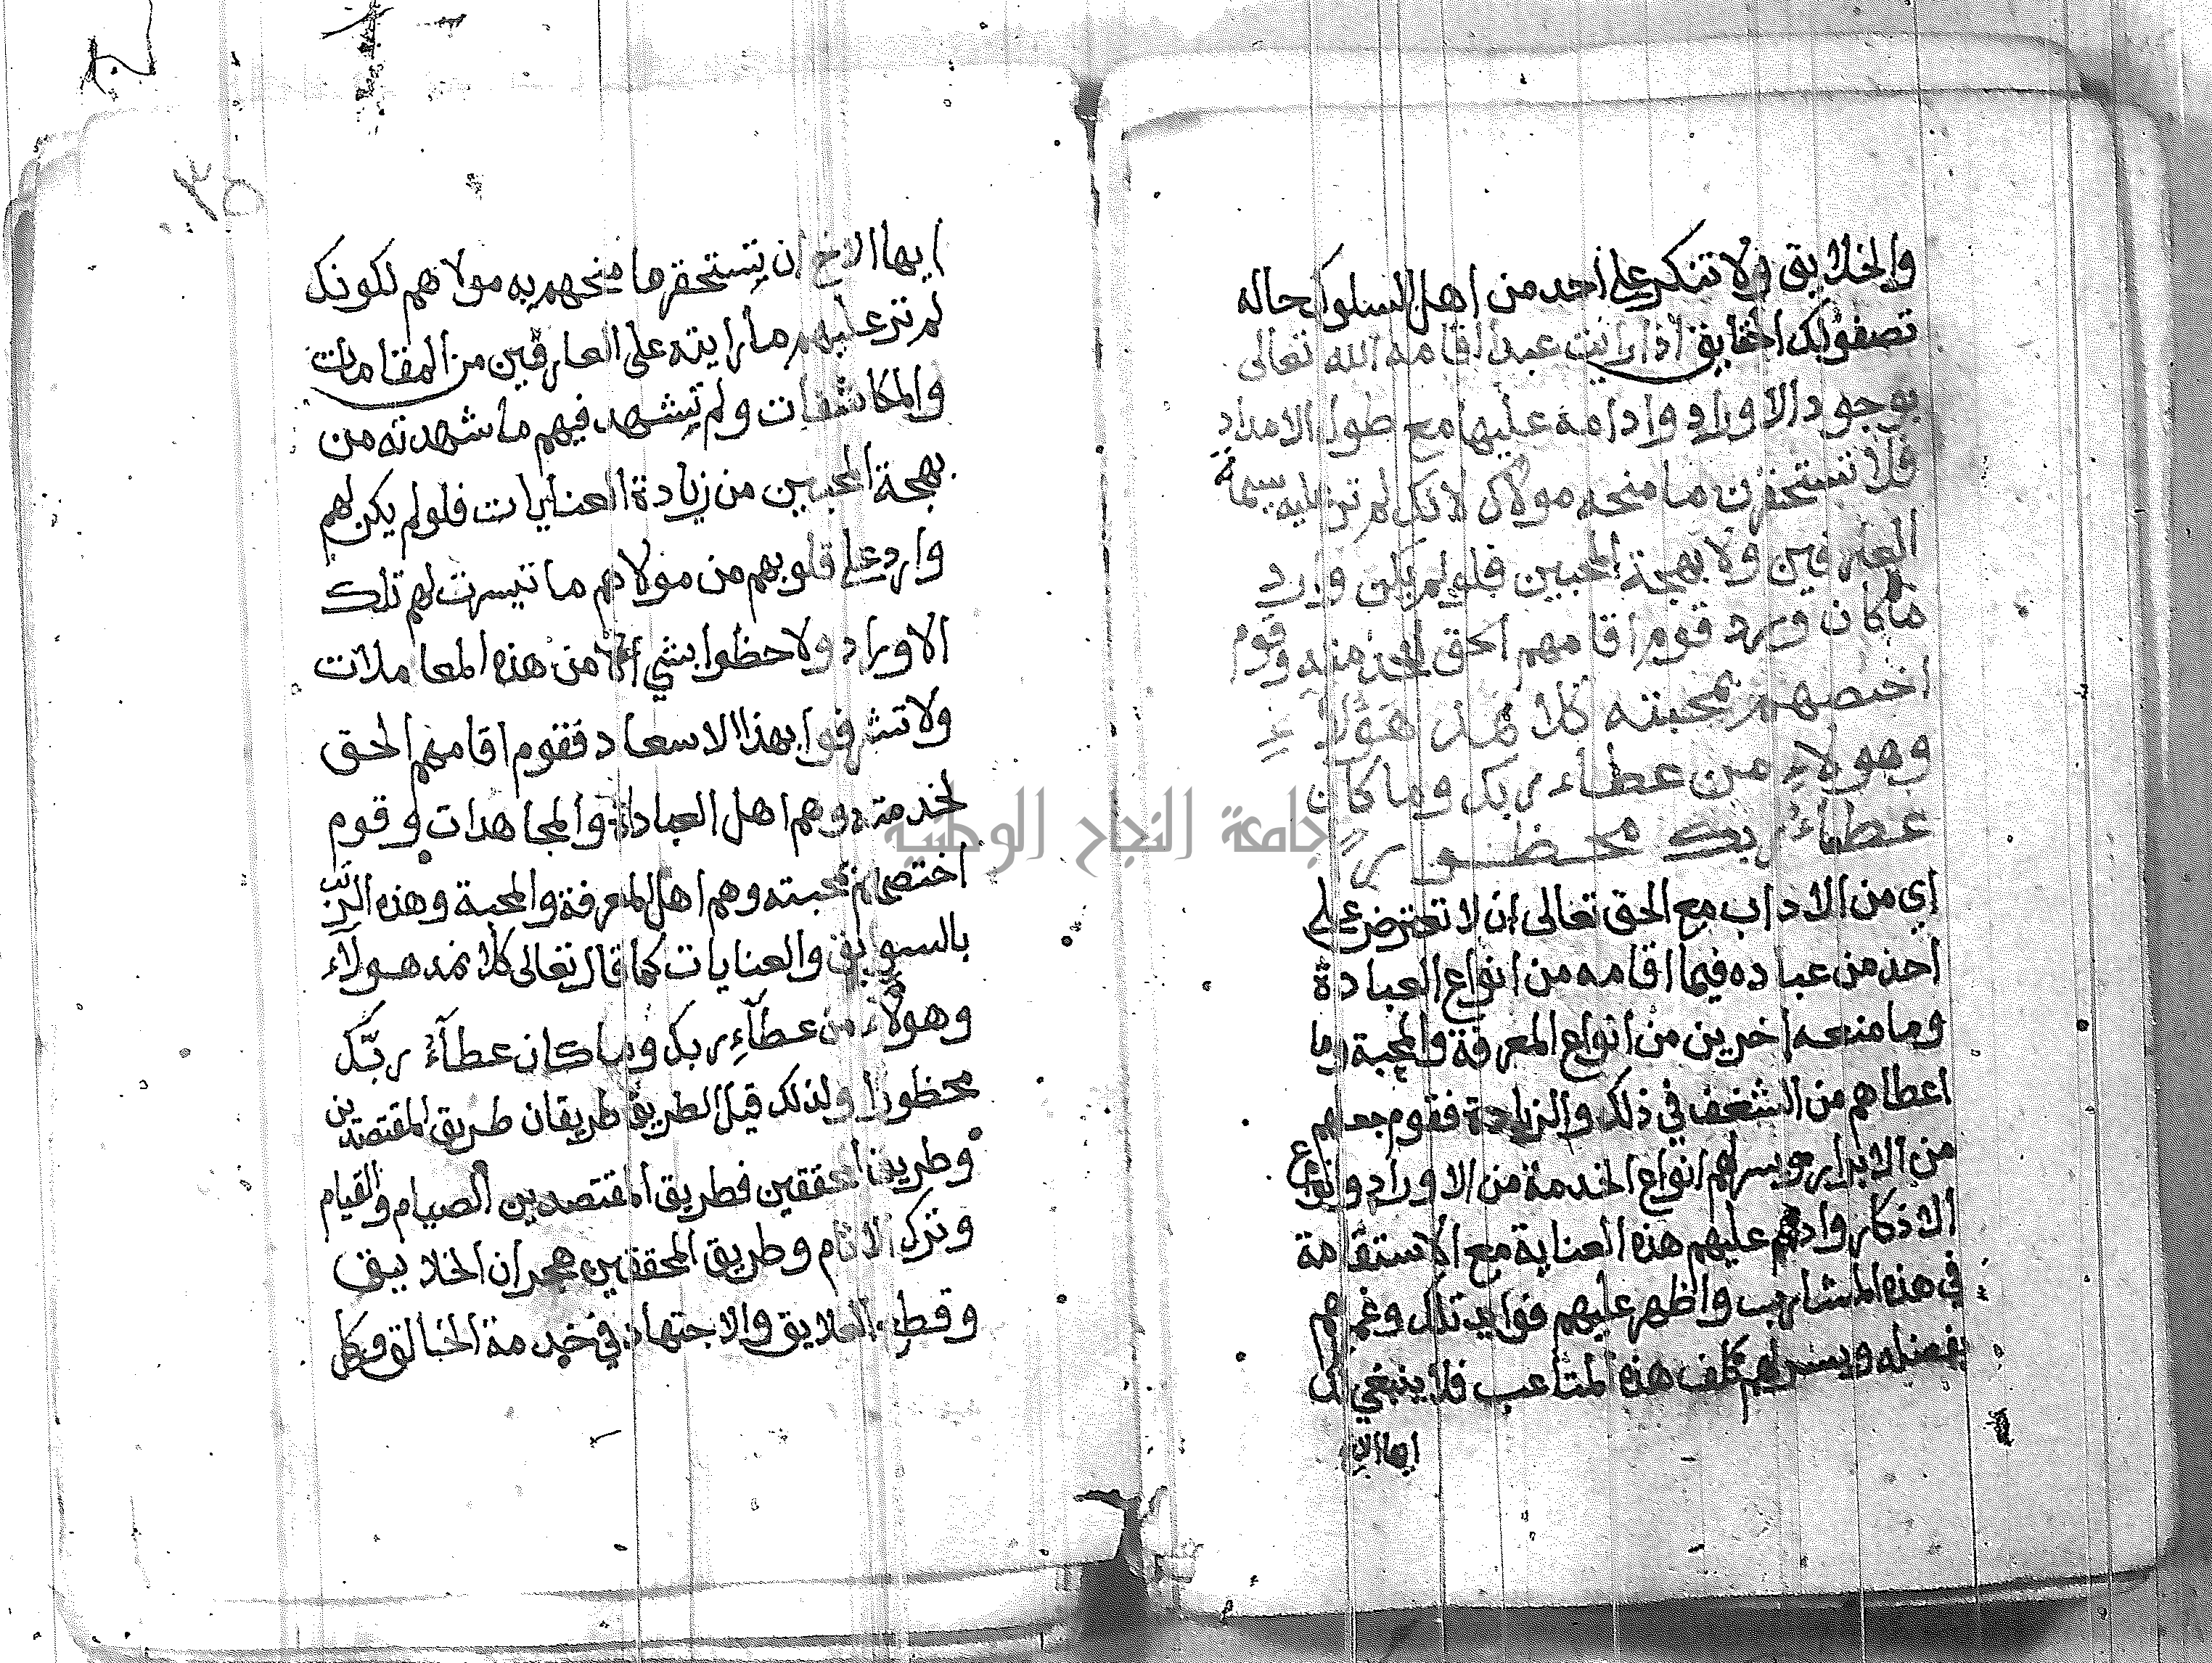 والخلايق ولا تنكر على أحد من اهل السلوك حاله
تصفو لك الحقايق اذا رايت عبدا اقامه الله تعالى
بوجود الاوراد وادامه عليها مع طول الامداد
فلا تستحقرن ما منحه مولاه لانك لم تر عليه سيما
العارفين ولا بهجة المحبين فلولم يكن وارد
ما كان ورد قوم اقامهم الحق لخدمته وقوم
اختصهم بمحبته كلا نمد هؤلاء
وهولاء من عطاء ربك وما كان
عطاء ربك محظورا
اي من الاداب مع الحق تعالى ان لا تعترض على
احد من عباده فيما اقامه من انواع العبادة
وما منحه اخرين من انواع المعرفة والمحبة وما
اعطاهم من الشغف في ذلك والزيادة فقوم جعلهم
من الابرار ويسر لهم انواع الخدمة من الاوراد وانواع
الاذكار وادام عليهم هذه العناية مع الاستقامة
في هذه المشارب واظهر عليهم فوايد تلك وغمرهم
بفضله ويسر لهم كلف هذه المتاعب فلا ينبغي لك
ايها الاخ
٣٥
ايها الاخ ان تستحقر ما منحهم به مولاهم لكونك
لم تر عليهم ما رايته على العارفين من المقامات
والمكاشفات ولم تشهد فيهم ما شهدته من
بهجة المحبين من زيادة العنايات فلولم يكن لهم
وارد على قلوبهم من مولاهم ما تيسرت لهم تلك
الاوراد ولا حظوا بشي من هذه المعاملات
ولا تشرفوا بهذا الاسعاد فقوم اقامهم الحق
لخدمته وهم اهل العبادة والمجاهدات وقوم
اختصهم بمحبته وهم اهل المعرفة والمحبة وهذه الرتب
بالسوابق والعنايات كما قال تعالى كلا نمد هولآء
وهولاء من عطآءِ ربك وما كان عطآءُ ربّك
محظورا ولذلك قيل الطريق طريقان طريق المقتصدين
وطريق المحققين فطريق المقتصدين الصيام والقيام
وترك الاثام وطريق المحققين هجران الخلايق
وقطع العلايق والاجتهاد في خدمة الخالق وكل
جامعة النجاح الوطنية